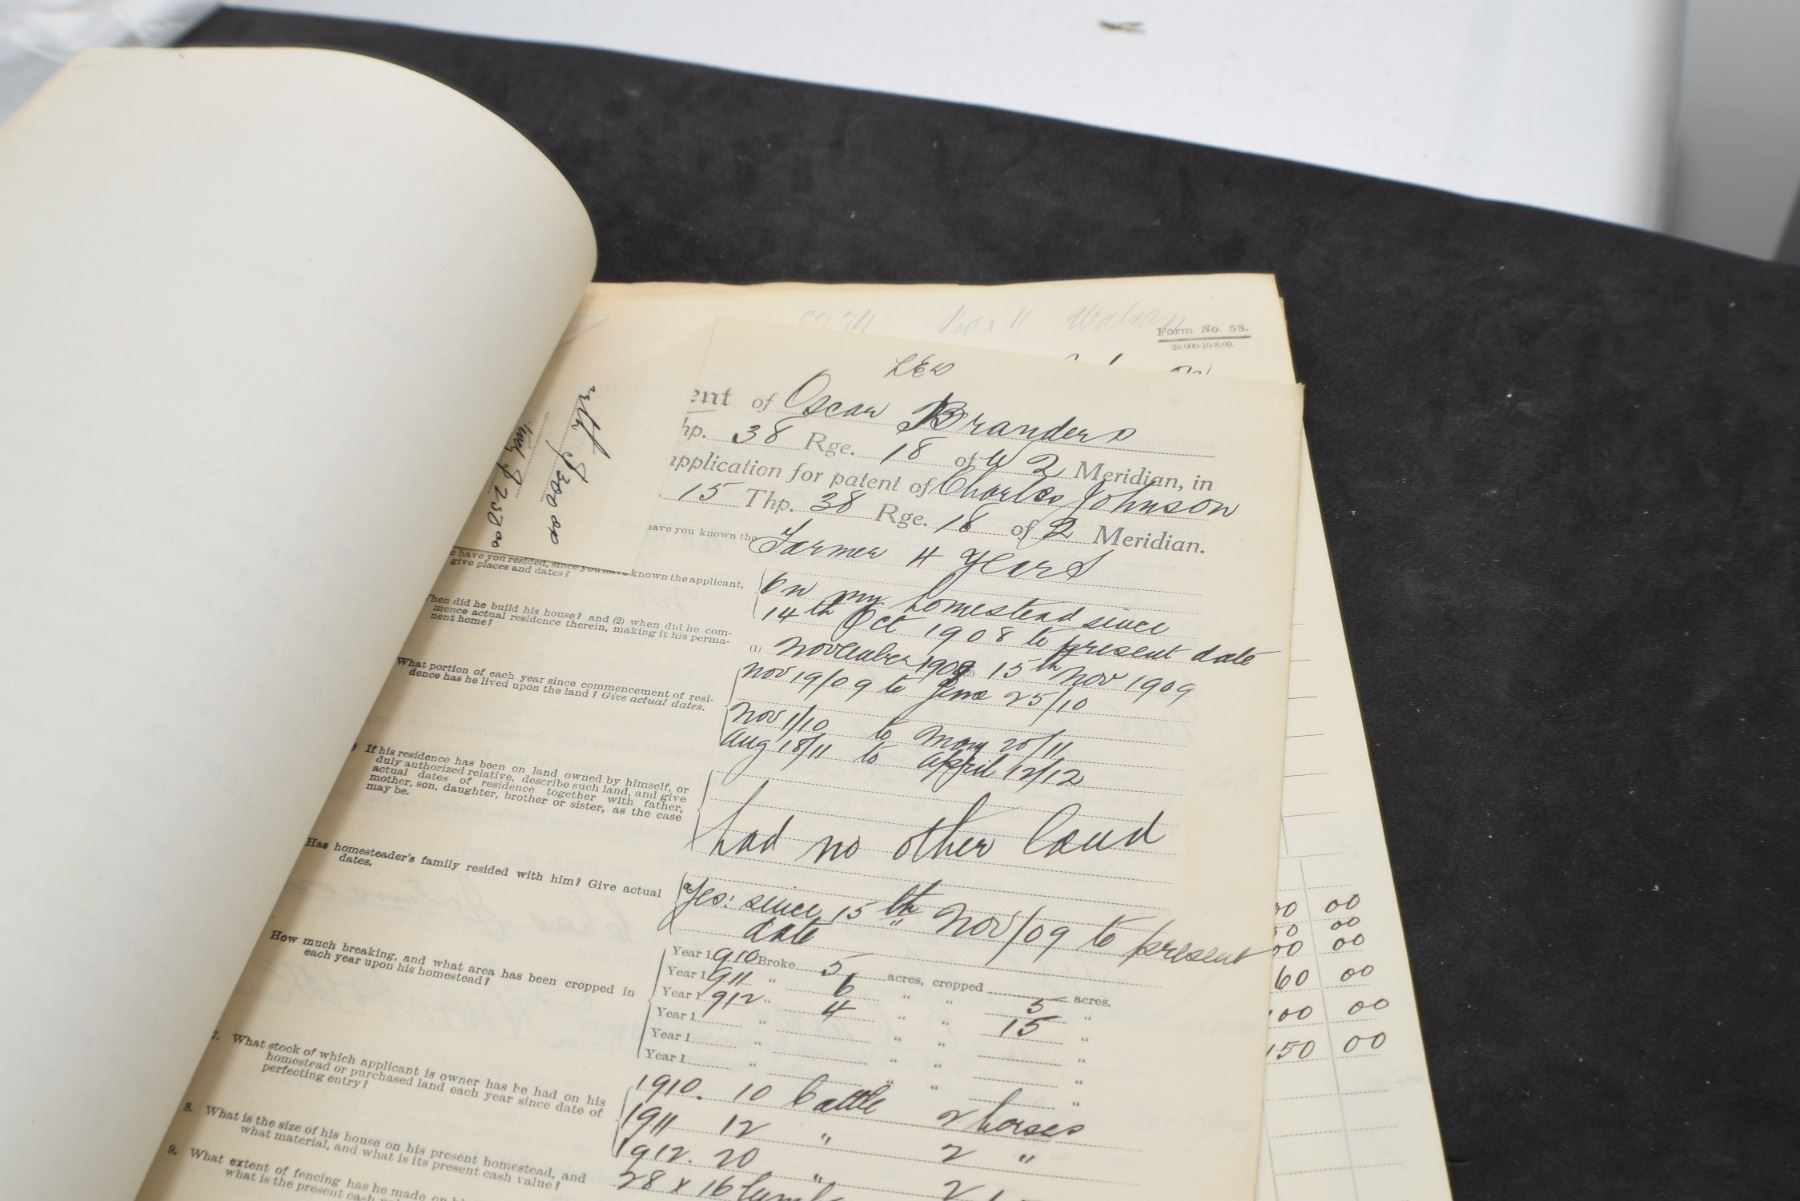 Form No. 53.
25 000-10-8-09.
ent of Oscar Branders
hp. 38 Rge. 18 of W 2 Meridian, in
application for patent of Charles Johnson
15 Thp. 38 Rge. 18 of 2 Meridian.
have you known the
Farmer 4 years
$300 00
$250 00
e have you resided, since you have known the applicant,
give places and dates?
On my homestead since
14th Oct 1908 to present date
hen did he build his house? and (2) when did he com-
mence actual residence therein, making it his perma-
nent home?
(1) November 1909 15th Nov 1909
What portion of each year since commencement of resi-
dence has he lived upon the land? Give actual dates.
Nov 19/09 to June 25/10
Nov 1/10 to May 20/11
Aug 18/11 to April 12/12
If his residence has been on land owned by himself, or
duly authorized relative, describe such land, and give
actual dates of residence together with father,
mother, son, daughter, brother or sister, as the case
may be.
had no other land
Has homesteader's family resided with him? Give actual
dates.
Yes: since 15th Nov/09 to present
date
How much breaking, and what area has been cropped in
each year upon his homestead?
Year 1910 Broke 5 acres, cropped acres.
Year 1911 " 6 " " 5 "
Year 1912 " 4 " " 15 "
Year 1 " " " "
Year 1 " " " "
Year 1 " " " "
7. What stock of which applicant is owner has he had on his
homestead or purchased land each year since date of
perfecting entry?
1910. 10 Cattle 2 horses
1911 12 " 2 "
1912. 20 " 2
8. What is the size of his house on his present homestead, and
what material, and what is its present cash value?
28 x 16
9. What extent of fencing has he made on
what is the present cash
00
00
00
60 00
100 00
150 00